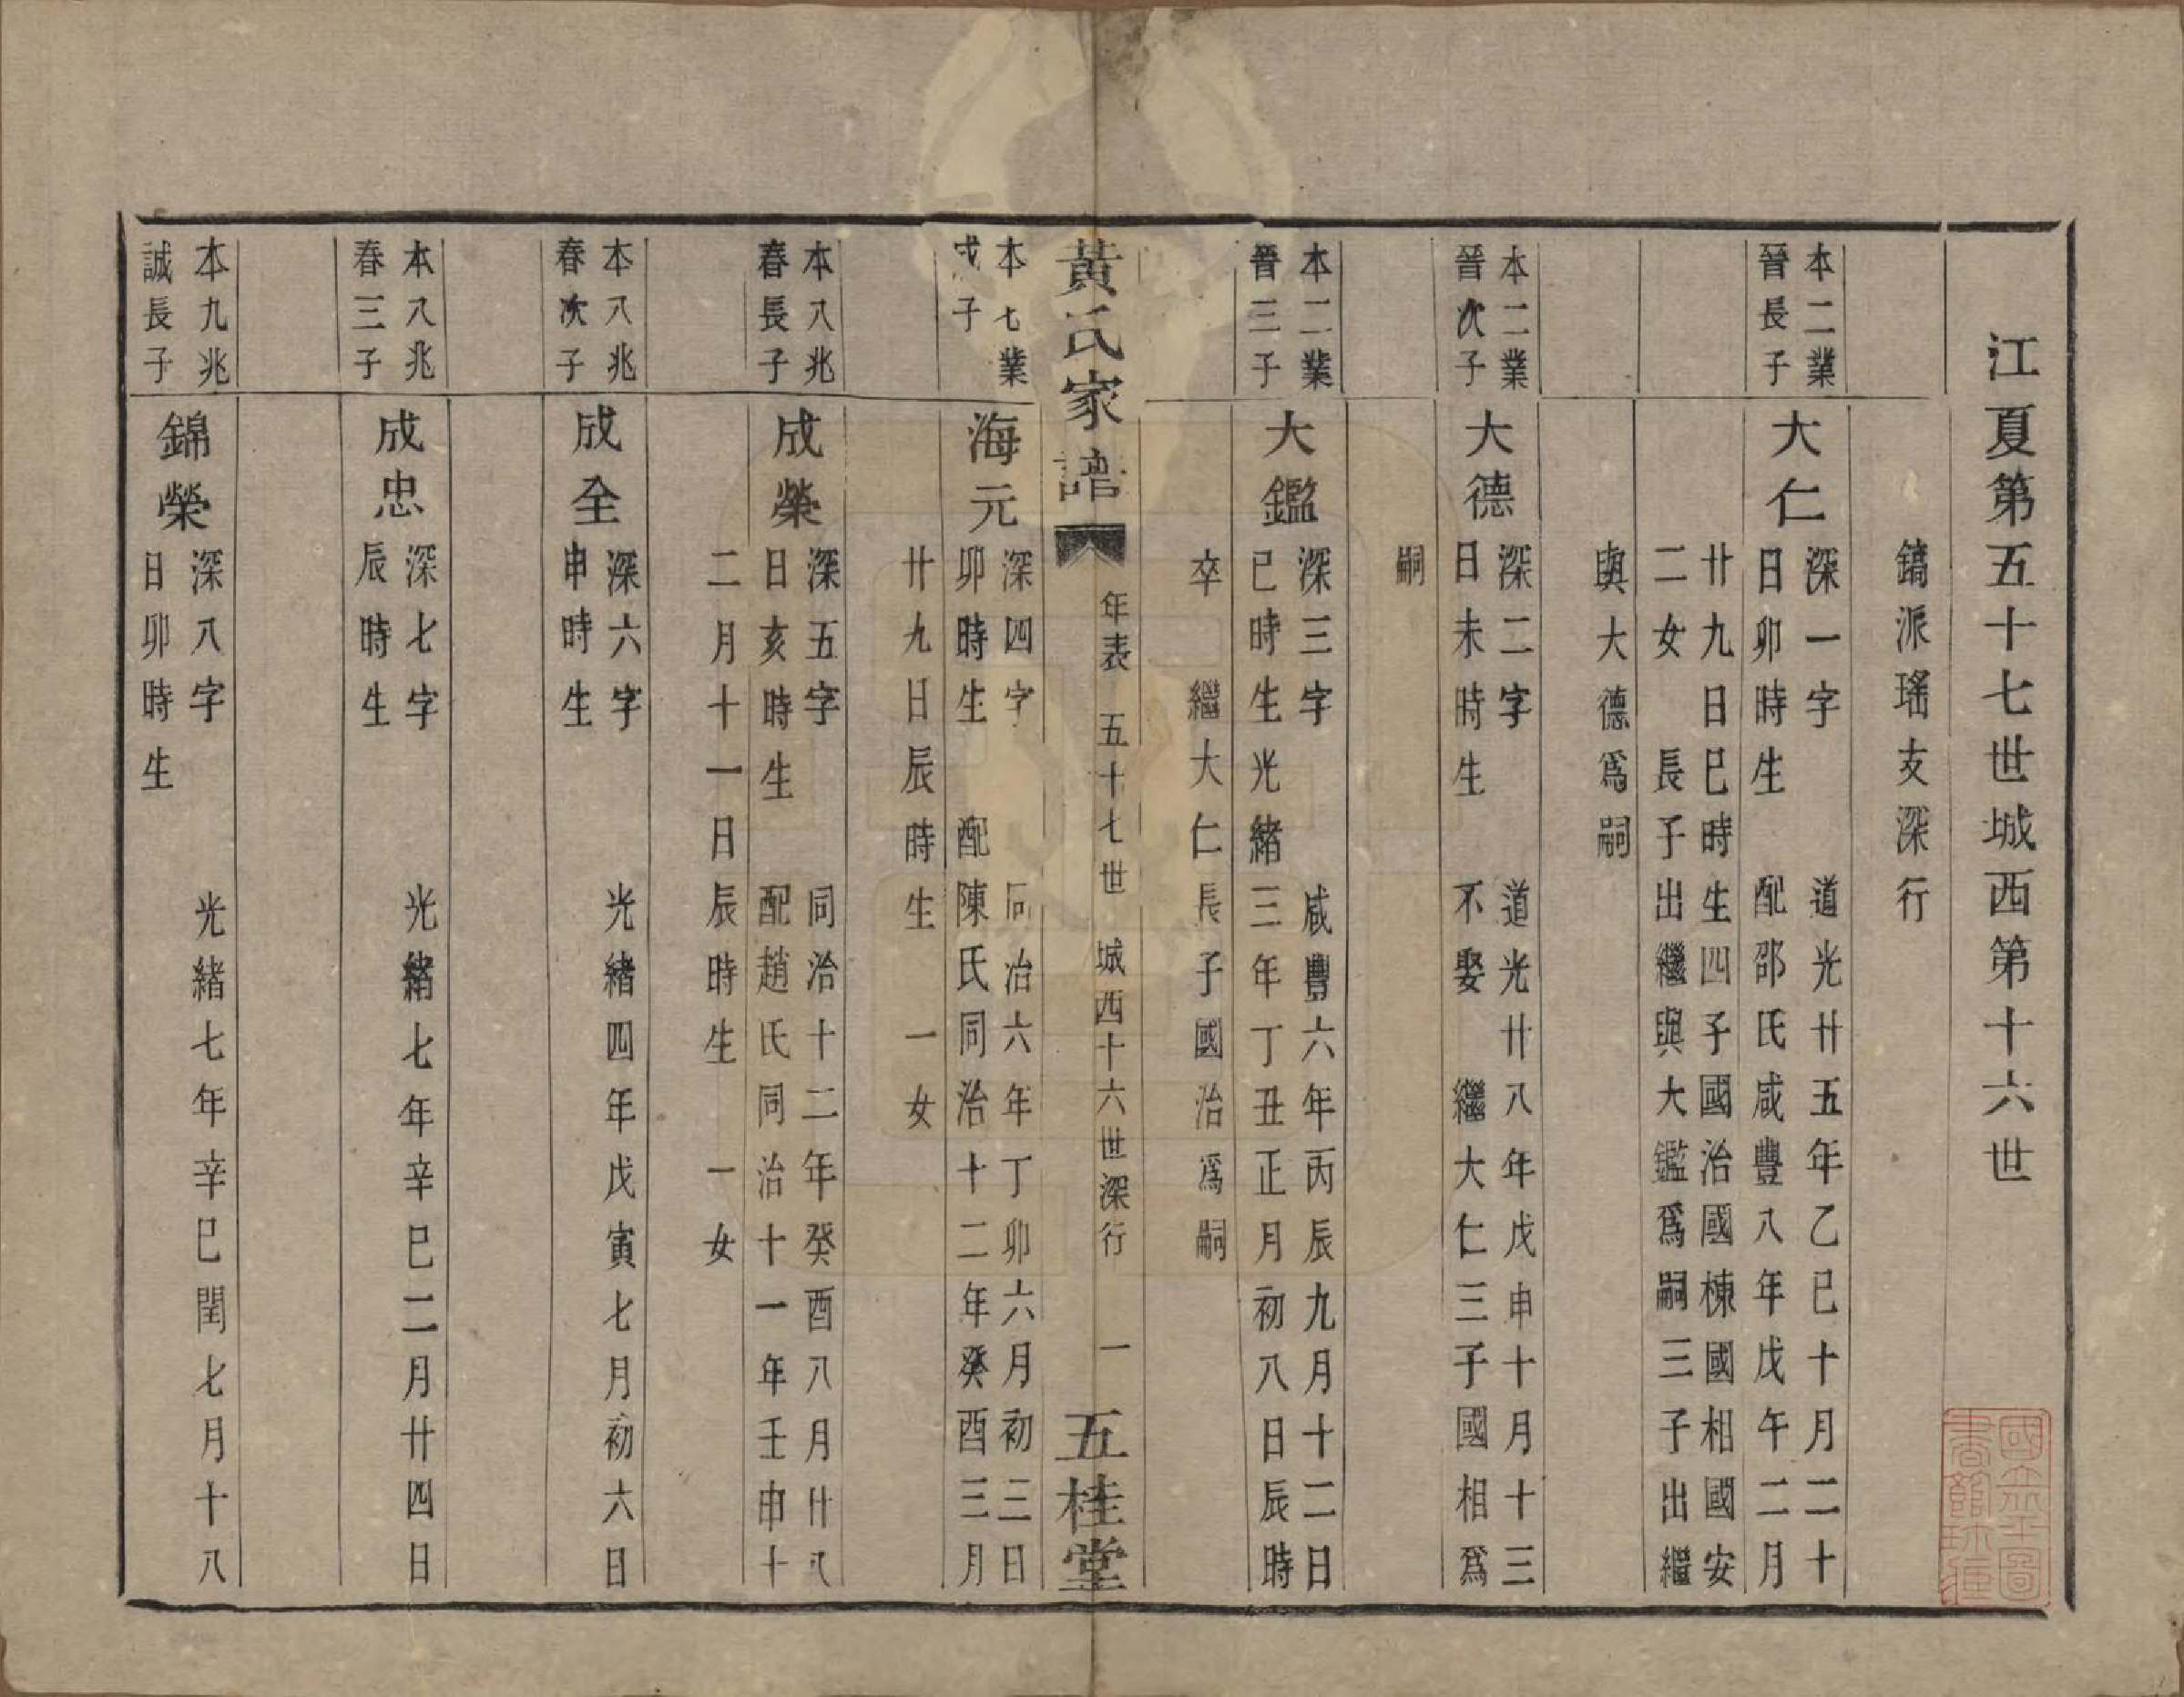 江夏第五十七世城西第十六世
鎬派瑤支深行
本二業
晉長子
大仁
深一字
道光廿五年乙巳十月二十
日卯時生
配邵氏咸豐八年戊午二月
廿九日巳時生四子國治國棟國相國安
二女
長子出繼與大鑑爲嗣三子出繼
與大德爲嗣
本二業
晉次子
大德
深二字
道光廿八年戊申十月十三
日未時生
不娶
繼大仁三子國相爲
嗣
本二業
晉三子
大鑑
深三字
咸豐六年丙辰九月十二日
巳時生光緒三年丁丑正月初八日辰時
卒
繼大仁長子國治爲嗣
黃氏家譜
年表
五十七世
城西十六世深行
一
五桂堂
本七業
成子
海元
深四字
同治六年丁卯六月初三日
卯時生
配陳氏同治十二年癸酉三月
廿九日辰時生
一女
本八兆
春長子
成榮
深五字
同治十二年癸酉八月廿八
日亥時生
配趙氏同治十一年壬申十
二月十一日辰時生
一女
本八兆
春次子
成全
深六字
光緒四年戊寅七月初六日
申時生
本八兆
春三子
成忠
深七字
光緒七年辛巳二月廿四日
辰時生
本九兆
誠長子
錦榮
深八字
光緒七年辛巳閏七月十八
日卯時生